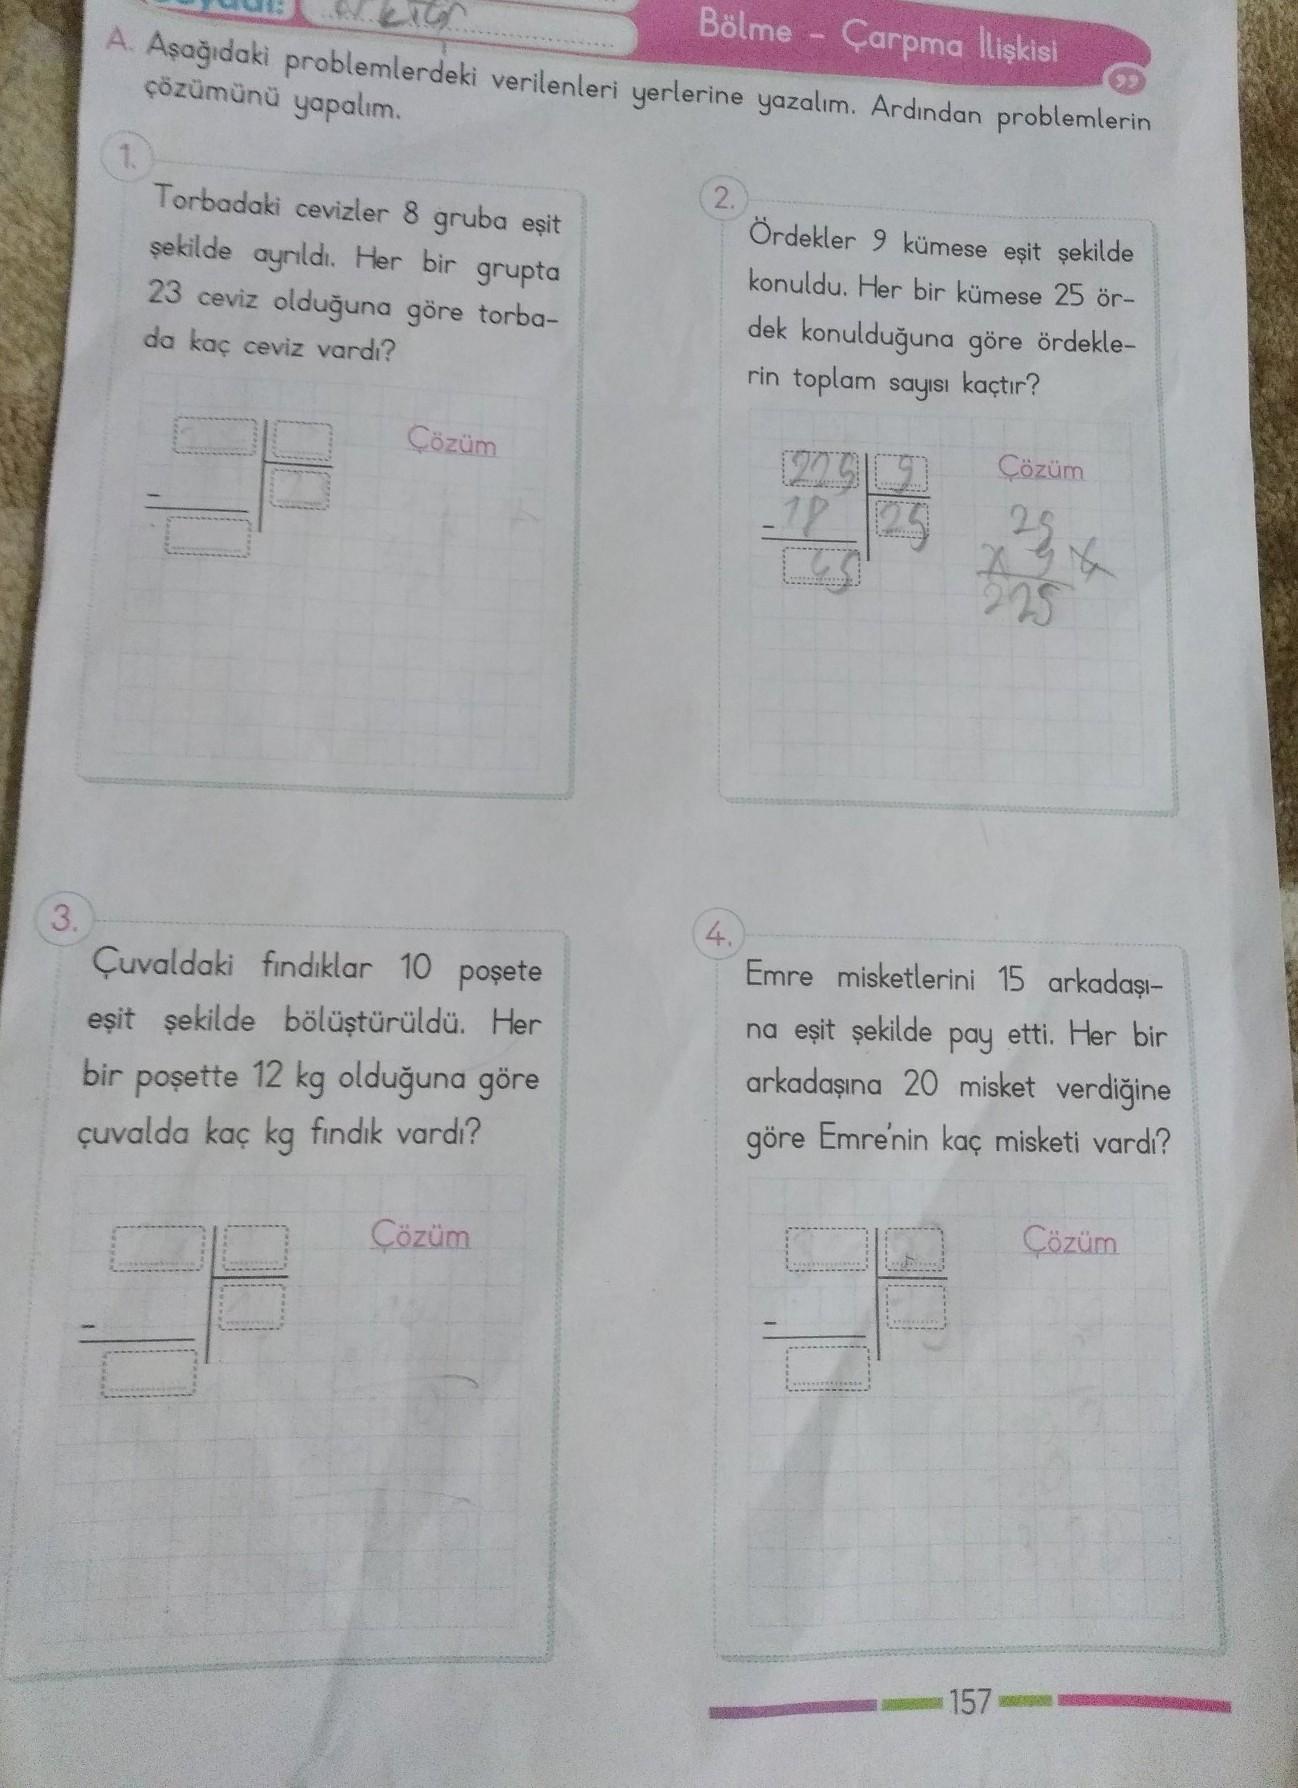 Bölme - Çarpma İlişkisi
A. Aşağıdaki problemlerdeki verilenleri yerlerine yazalım. Ardından problemlerin
çözümünü yapalım.
1.
Torbadaki cevizler 8 gruba eşit
şekilde ayrıldı. Her bir grupta
23 ceviz olduğuna göre torba-
da kaç ceviz vardı?
Çözüm
-
2.
Ördekler 9 kümese eşit şekilde
konuldu. Her bir kümese 25 ör-
dek konulduğuna göre ördekle-
rin toplam sayısı kaçtır?
225 9
Çözüm
- 18 25
45
25
x 9
225
3.
Çuvaldaki fındıklar 10 poşete
eşit şekilde bölüştürüldü. Her
bir poşette 12 kg olduğuna göre
çuvalda kaç kg fındık vardı?
Çözüm
-
4.
Emre misketlerini 15 arkadaşı-
na eşit şekilde pay etti. Her bir
arkadaşına 20 misket verdiğine
göre Emre'nin kaç misketi vardı?
Çözüm
-
157